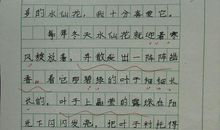 的水仙花，我十分喜爱它。
每年冬天水仙花就迎着寒
风绽放着，并散发出一阵阵幽
香，看它那碧绿的叶子细细长
长的，叶子上晶莹的露珠在阳
光下闪闪发亮，把叶子衬托得